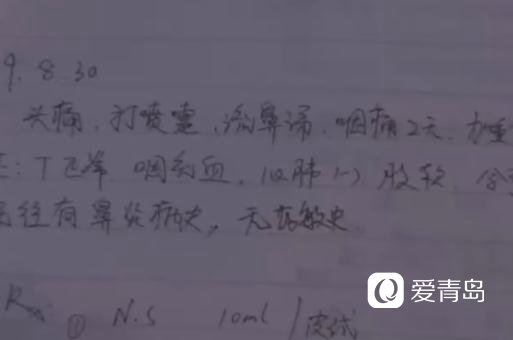 9. 8. 30
头痛、打喷嚏、流鼻涕、咽痛2天、加重
: T 正常 咽充血, 心肺(-) 腹软.
既往有鼻炎病史, 无药敏史.
R
① N.S 10ml / 皮试
爱青岛